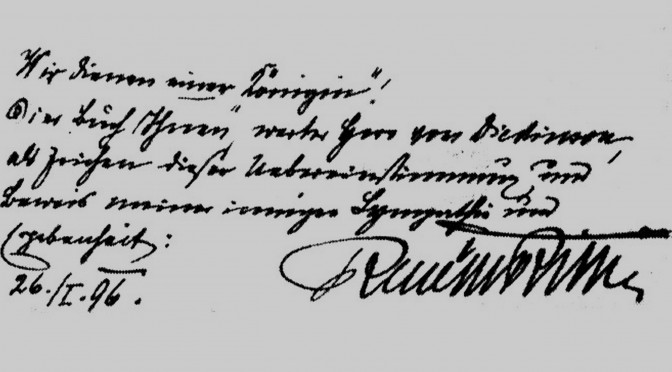 "Wir dienen einer Königin"!
Dies Buch Ihnen, werter Herr von Dickinson,
als Zeichen dieser Uebereinstimmung und
Beweis meiner innigen Sympathie und
Ergebenheit:
26./I. 96. René Maria Rilke